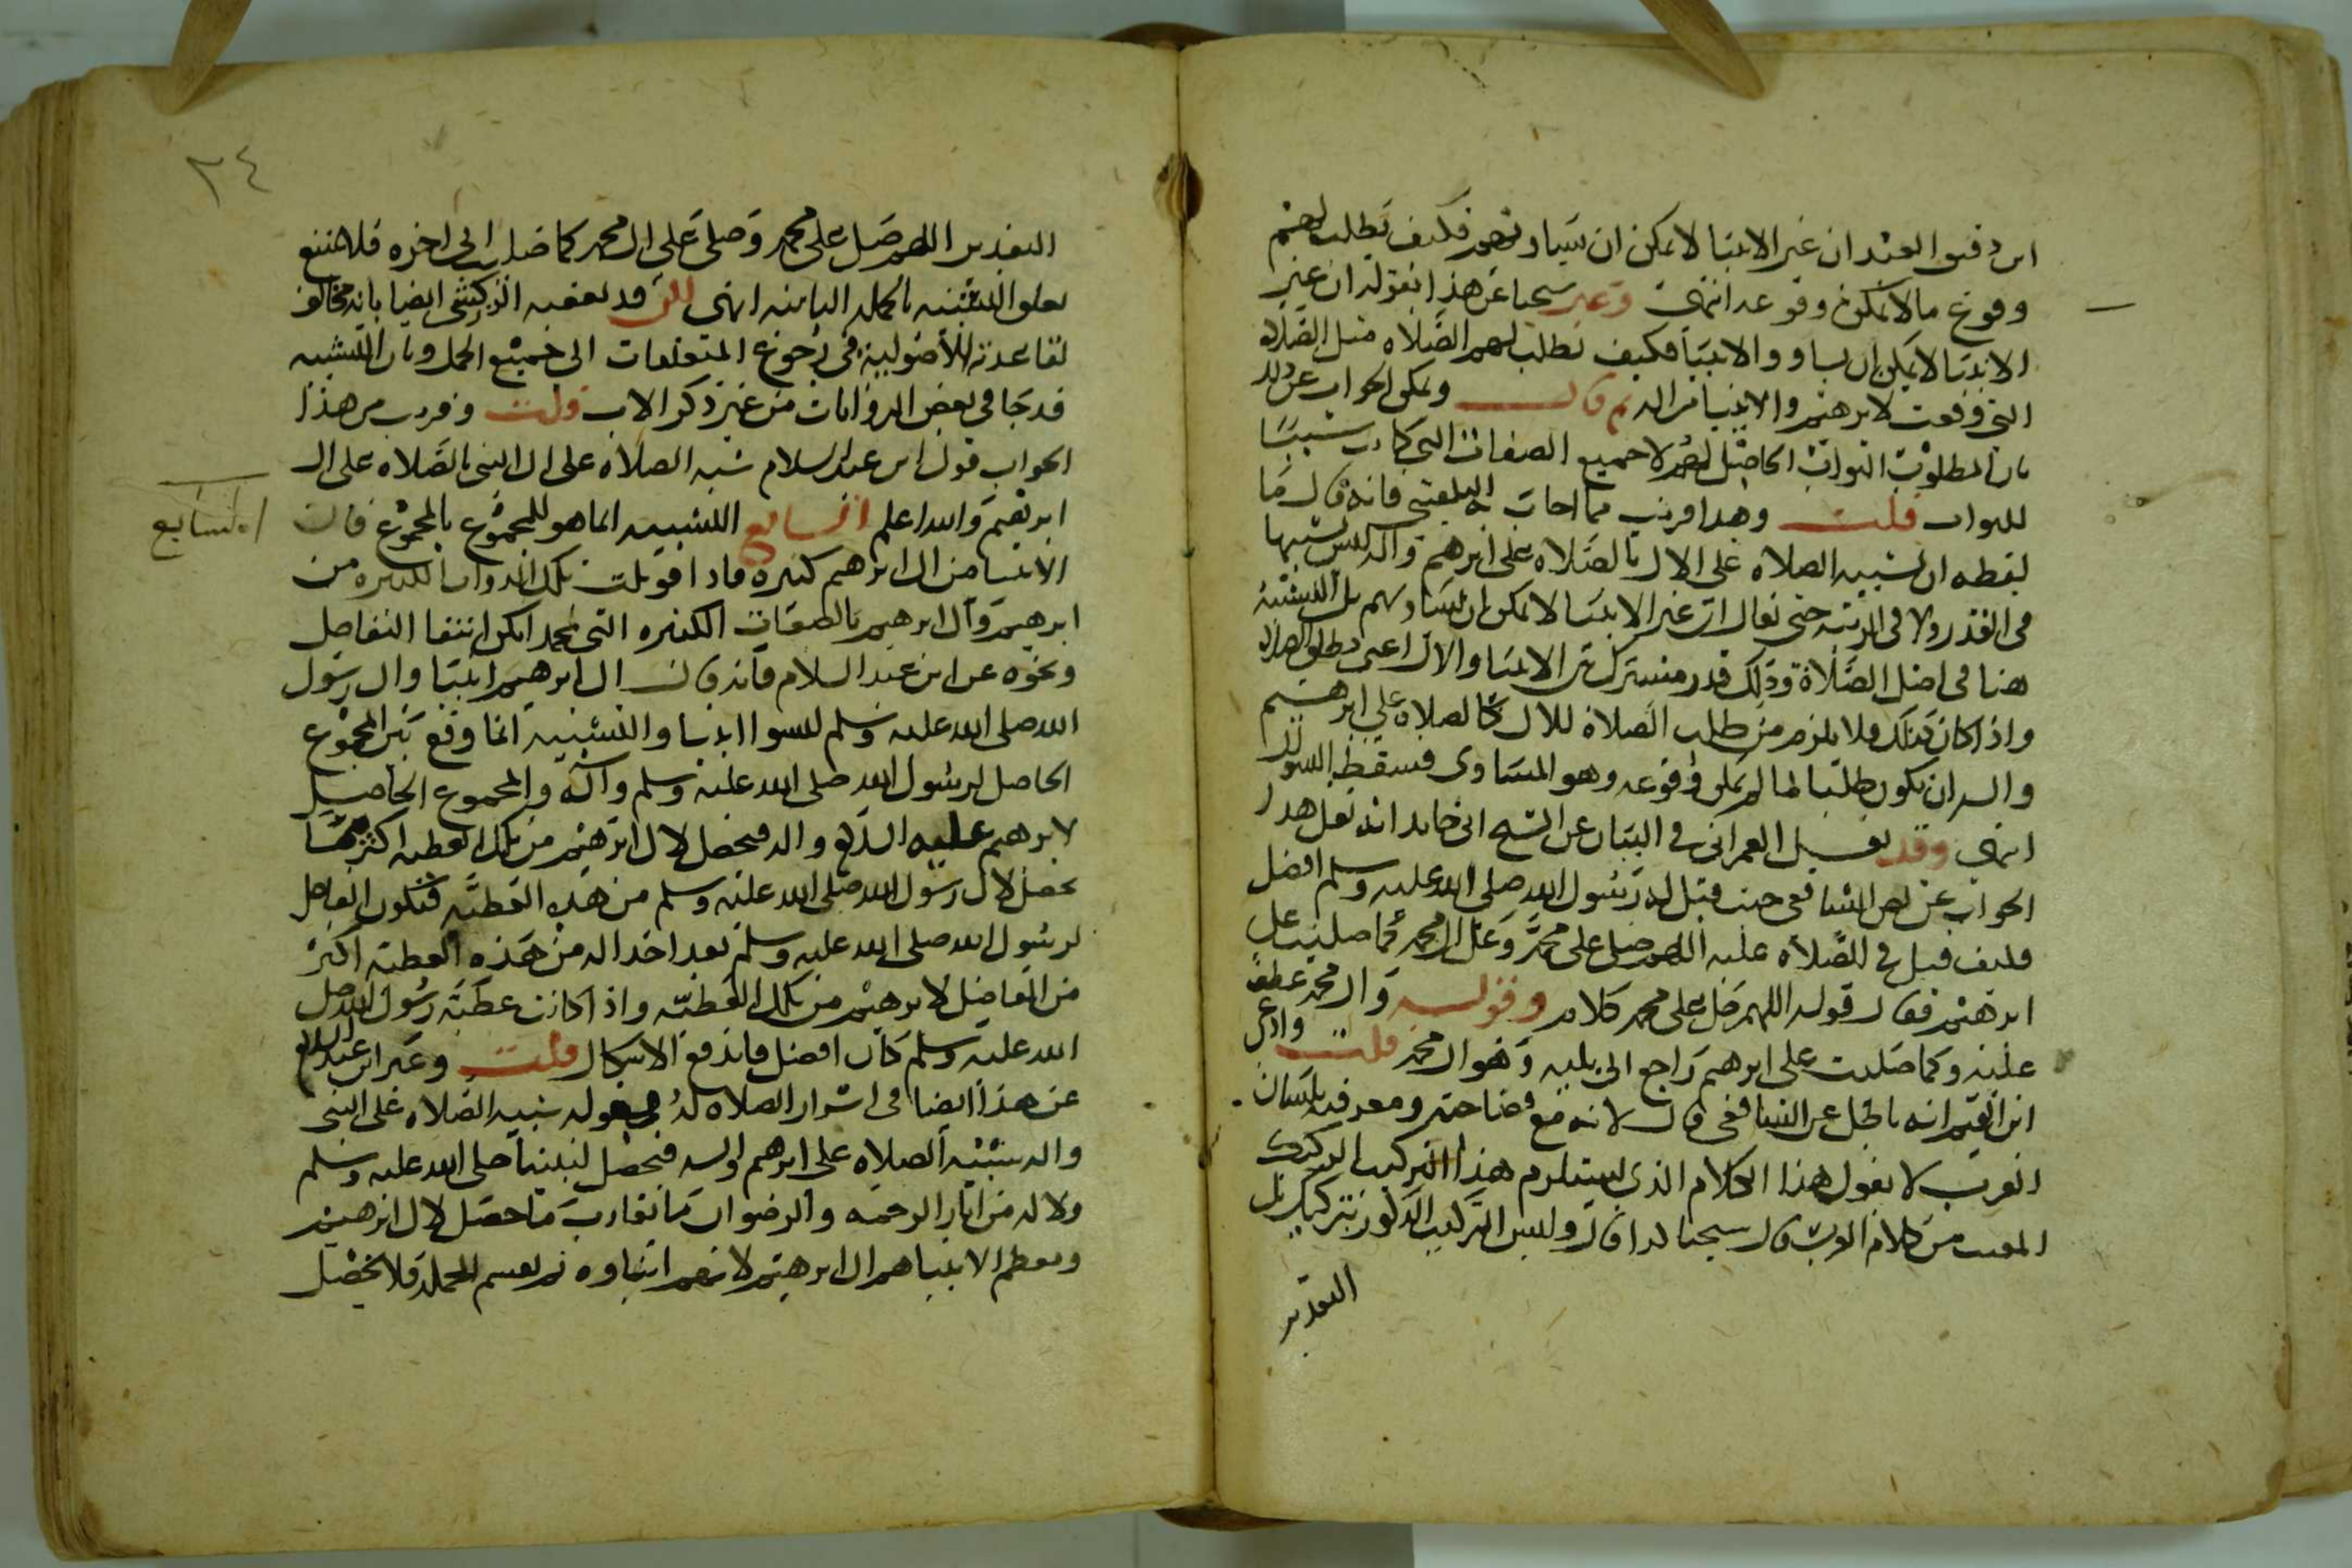 ابن دقيق العيد ان غير الانبيا لا يمكن ان يساووهم فكيف يطلب لهم
وقوع ما لا يمكن وقوعه انتهى وعبر شيخنا عن هذا بقوله ان غير
الانبيا لا يمكن ان يساووا الانبيا فكيف تطلب لهم الصلاه مثل الصلاه
التى وقعت لابرهيم والانبيا من اله ثم قال ويمكن الجواب عن ذلك
بان المطلوب الثواب الحاصل لهم لا جميع الصفات التى كانت سببا
للثواب قلت وهذا قريب مما اجاب به البلقينى فانه قال ما
لفظه ان تشبيه الصلاه على الال بالصلاه على ابرهيم واله ليس تشبيها
فى القدر ولا فى الرتبه حتى يقال ان غير الانبيا لا يمكن ان يساويهم بل التشبيه
هنا فى اصل الصلاة وذلك قدر مشترك بين الانبيا والال اعنى مطلق الصلاه
واذا كان كذلك فلا يلزم من طلب الصلاة للال كالصلاه على ابرهيم
واله ان يكون طلبا لما لم يمكن وقوعه وهو المساوى فسقط السوال
انتهى وقد نقل العمرانى فى البيان عن الشيخ ابى حامد انه نقل هذا
الجواب عن نص الشافعى حيث قيل له رسول الله صلى الله عليه وسلم افضل
فكيف قيل فى الصلاه عليه اللهم صل على محمد وعلى ال محمد كما صليت على
ابرهيم فقال قوله اللهم صل على محمد كلام وقوله وال محمد عطف
عليه وكما صليت على ابرهيم راجع الى يليه وهو ال محمد قلت وادعى
ابن القيم انه باطل عن الشافعى قال لانه مع فصاحته ومعرفته بلسان
العرب لا يقول هذا الكلام الذى يستلزم هذا التركيب الركيك
المعيب من كلام العرب قال شيخنا كذا قال وليس التركيب المذكور بركيك بل
التقدير
٢٤
التقدير اللهم صل على محمد وصلى على ال محمد كما صليت الى اخره فلا يمتنع
تعلق التشبيه بالجمله الثانيه انتهى لكن قد تعقبه الزركشى ايضا بانه مخالف
لقاعدته الاصوليه فى رجوع المتعلقات الى جميع الجمل وبان التشبيه
قد جا فى بعض الروايات من غير ذكر الال قلت وقريب من هذا
الجواب قول ابن عبد السلام شبه الصلاه على ال النبى بالصلاه على ال
ابرهيم والله اعلم السابع التشبيه انما هو للمجموع بالمجموع فان
السابع
الانبيا من ال ابرهيم كثيره فاذا قوبلت تلك الذوات الكثيره من
ابرهيم وال ابرهيم بالصفات الكثيره التى لمحمد امكن انتفا التفاضل
ونحوه عن ابن عبد السلام فانه قال ال ابرهيم انبيا وال رسول
الله صلى الله عليه وسلم ليسوا انبيا والتشبيه انما وقع بين المجموع
الحاصل لرسول الله صلى الله عليه وسلم واله والمجموع الحاصل
لابرهيم عليه السلام واله فيحصل لال ابرهيم من تلك العطيه اكثر مما
يحصل لال رسول الله صلى الله عليه وسلم من هذه العطيه فيكون الفاضل
لرسول الله صلى الله عليه وسلم بعد اخذ اله من هذه العطيه اكثر
من الفاضل لابرهيم من تلك العطيه واذا كانت عطية رسول الله صلى
الله عليه وسلم كان افضل فاندفع الاشكال قلت وعبر ابن عبد السلام
عن هذا ايضا فى اسرار الصلاه له بقوله شبيه الصلاه على النبى
واله بتشبيه الصلاه على ابرهيم واله فيحصل لنبينا صلى الله عليه وسلم
ولاله من اثار الرحمه والرضوان ما يقارب ما حصل لال ابرهيم
ومعظم الانبيا هم ال ابرهيم لانهم ابناوه ثم يقسم الجمله فلا يحصل